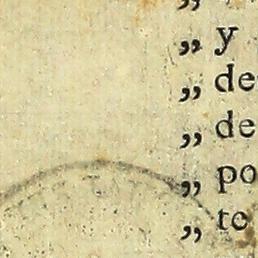 „
„ y
„ de
„ de
„ po
„ te